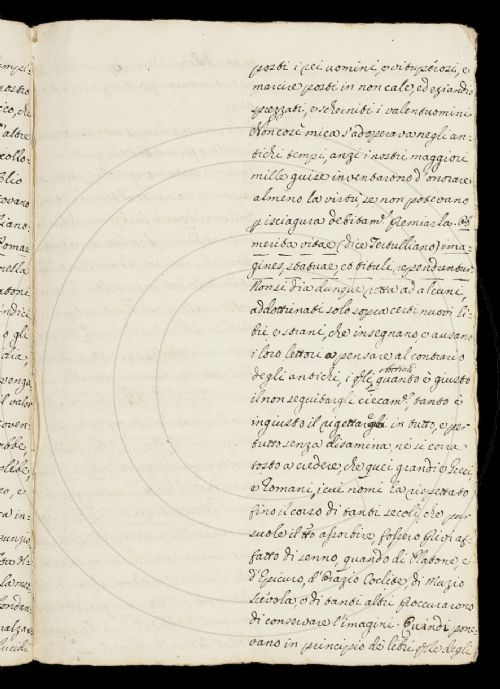 posti i rei uomini, e vituperosi, e
marcire posti in non cale, ed eziandio
sprezzati, e scherniti i valentuomini.
Non così mica s'adoperava negli an-
tichi tempi, anzi i nostri maggiori
mille guise inventarono d'onorare
almeno la virtù, se non potevano
p isciagura debitam.e premiarla. Ob
merita vitae (dice Tertulliano) ima-
gines, statuae, et tituli respondentur.
Non si dia dunque retta ad alcuni,
addottrinati solo sopra certi nuovi li-
bri estrani, che insegnano e ausano
i loro lettori a pensare al contrario
degli antichi, i q.li quanto è giusto
il non seguitargli ciecam.e, tanto è
ingiusto il rigettargli in tutto, e per
tutto senza disamina, nè si corra
tosto a credere, che quei grandi e Greci
e Romani, i cui nomi ha rispettato
fino il corso di tanti secoli, che pur
suole il tto assorbire, fossero privi af-
fatto di senno, quando di Platone, e
d'Epicuro, d'Orazio Coclite, di Muzio
Scevola, e di tanti altri proccurarono
di conservare l'imagini. Quindi pone-
vano in principio de' libri q.le degli